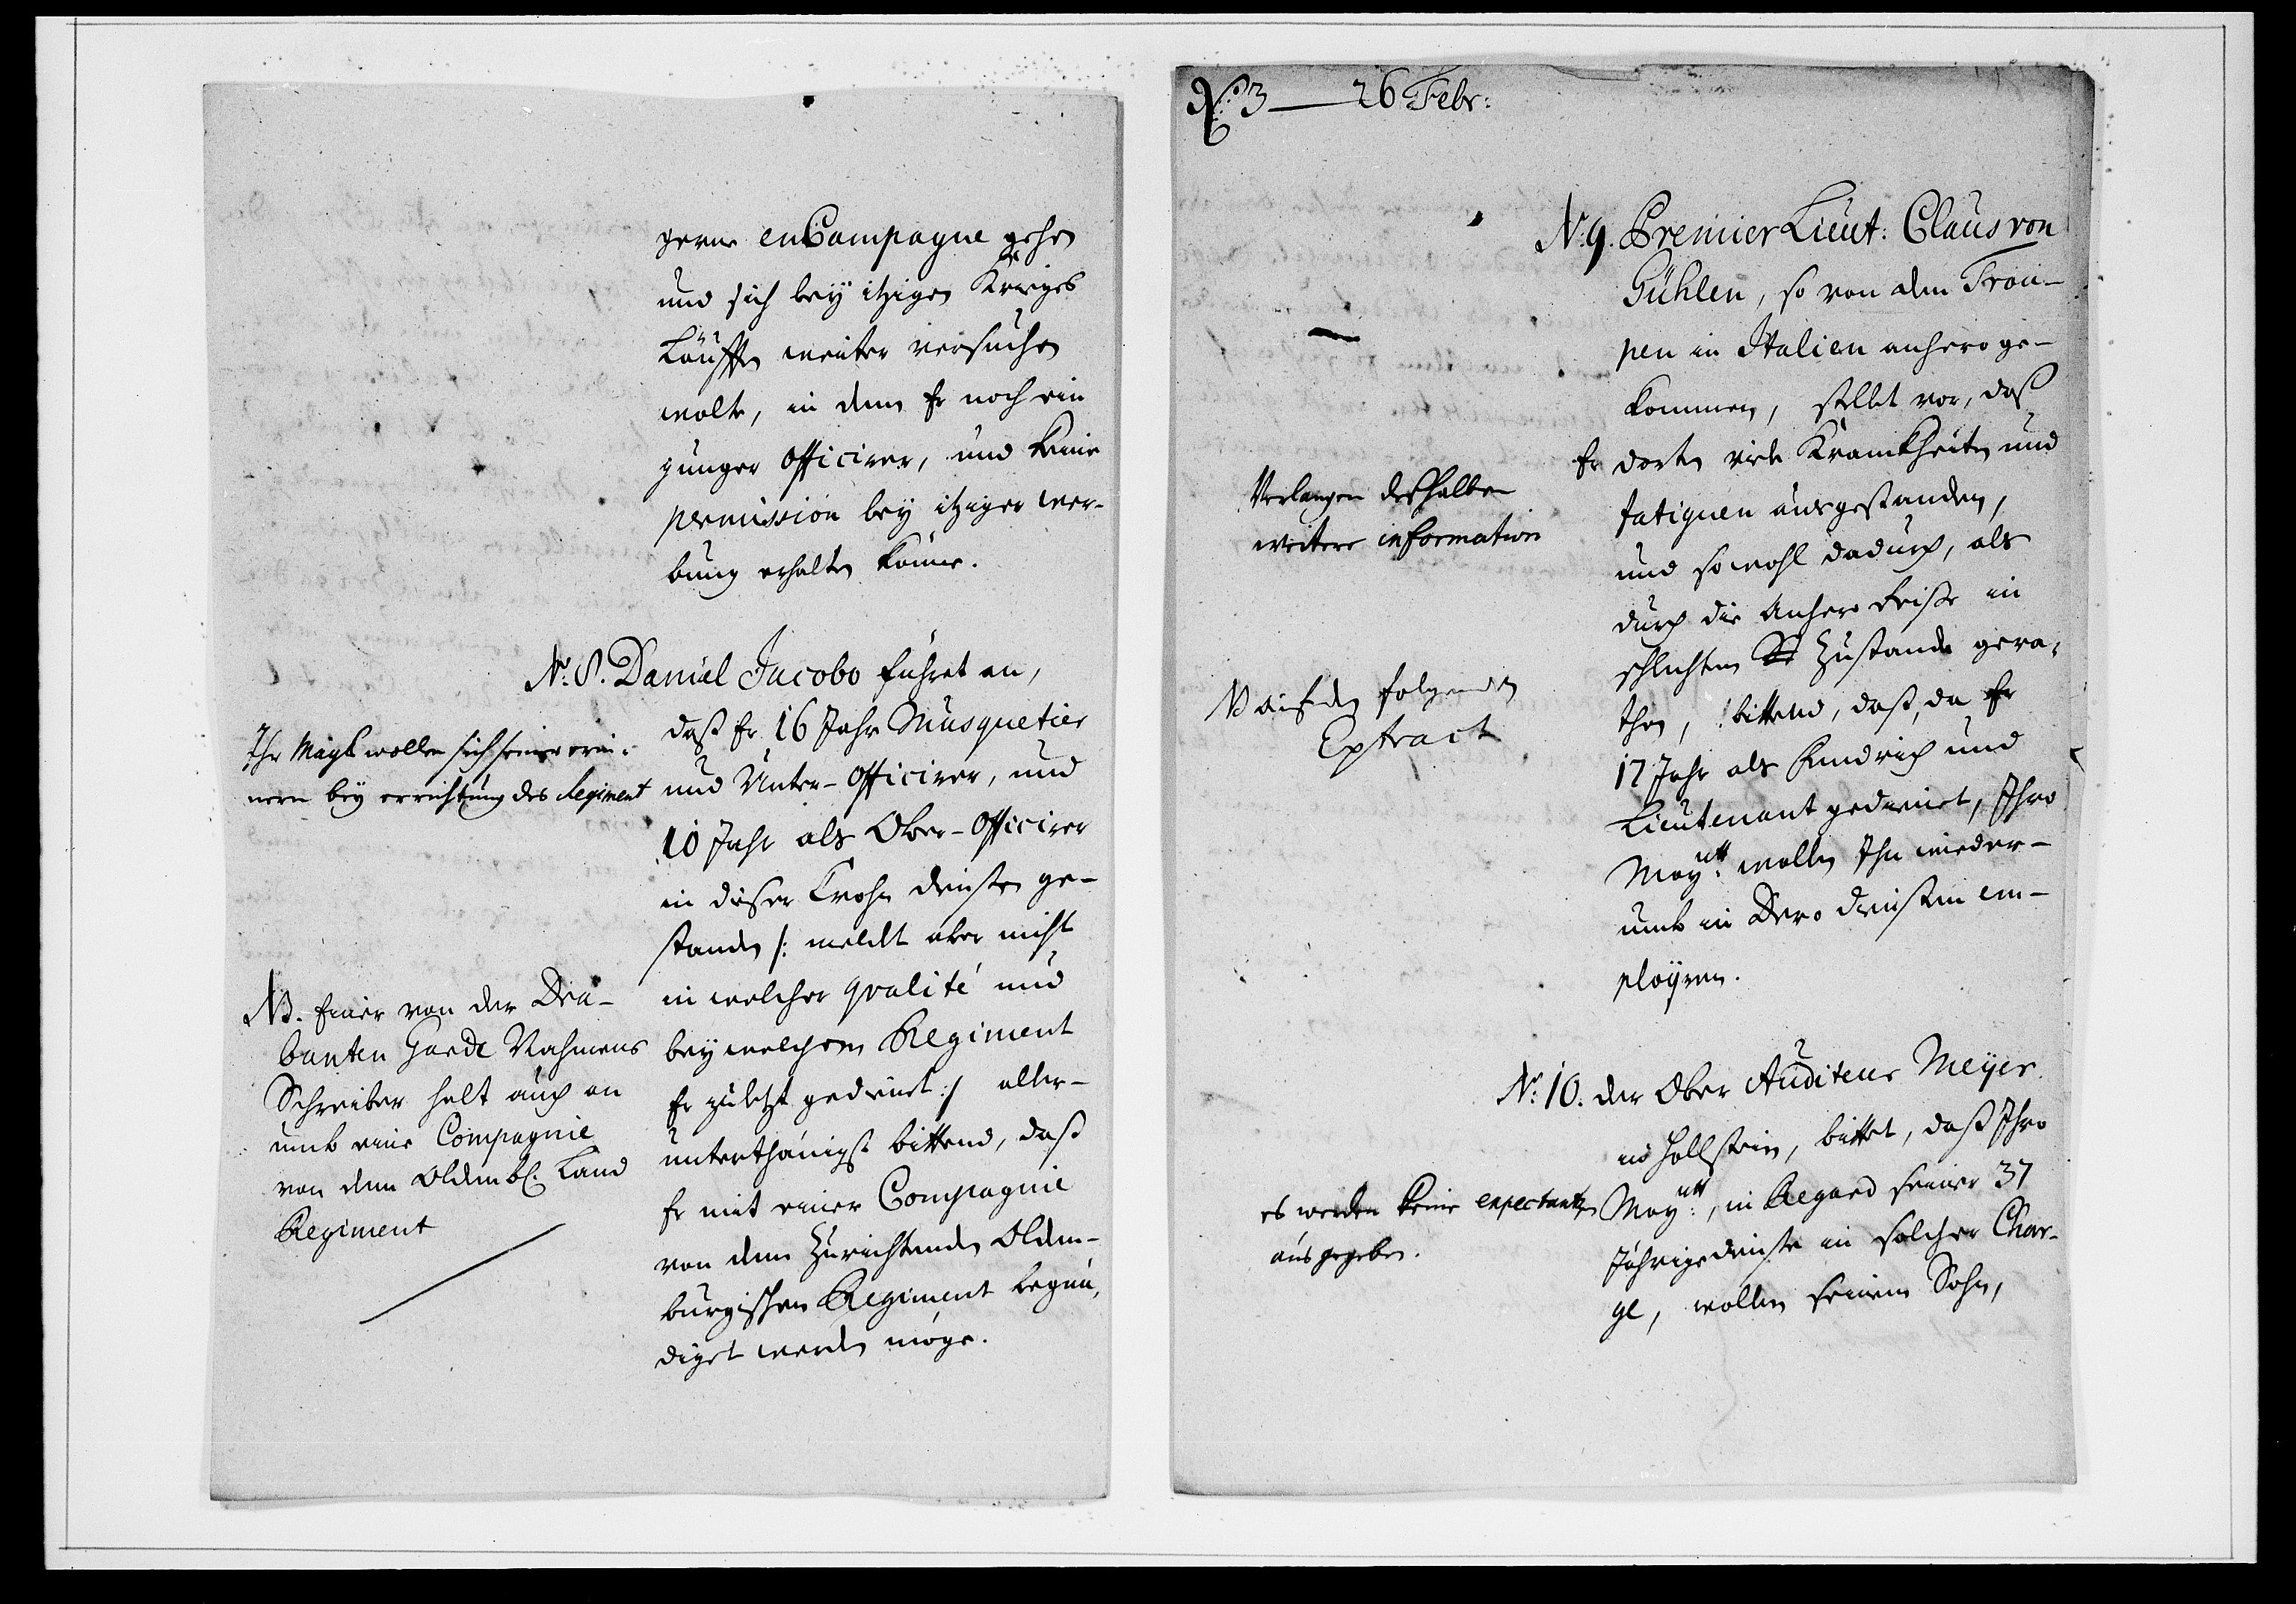 gerne en Campagne gehen
und sich bey itzigen Krieges
Läufften weiter versuchen
wolte, in dem Er noch ein
junger Officirer, und keine
permission bey itziger wer-
bung erhalten könne.
N: 8. Daniel Jacobo führet an,
daß Er 16 Jahr Musquetier
und Unter-Officirer, und
10 Jahr als Ober-Officirer
in dieser Crohn diensten ge-
standen /: meldt aber nicht
in welcher qvalité und
bey welchem Regiment
Er zuletzt gedienet :/ aller-
unterthänigst bittend, daß
Er mit einer Compagnie
von dem Zurichtenden Olden-
burgischen Regiment begnä-
diget werden möge.
Ihr Mayt wollen sich seiner erin-
nern bey errichtung des Regiment
NB. Einer von der Dra-
banten Garde Nahmens
Schreiber helt auch an
umb eine Compagnie
von dem Oldenb. Land
Regiment
No: 3 — 26 Febr:
N: 9. Premier Lieut: Claus von
Gühlen, so von den Trou-
pen in Italien anhero ge-
kommen, stellet vor, daß
Er dorten viele Kranckheiten und
fatiquen ausgestanden,
und sowohl dadurch, als
durch die anhero Reise in
schlechten Zustande gera-
then, bittend, daß, da Er
17 Jahr als Fendrich und
Lieutenant gedienet, Ihro
Maytt: wollen Ihn wieder-
umb in Dero diensten em-
ployren.
Verlangen deshalben
weitere information
NB auf den folgenden
Extract
N: 10. der Ober Auditeur Meyer
in Hollstein, bittet, daß Ihro
Maytt:, in Regard seiner 37
Jährige dienste in solcher Char-
ge, wollen seinem Sohn,
es werden keine expectantzen
ausgegeben.